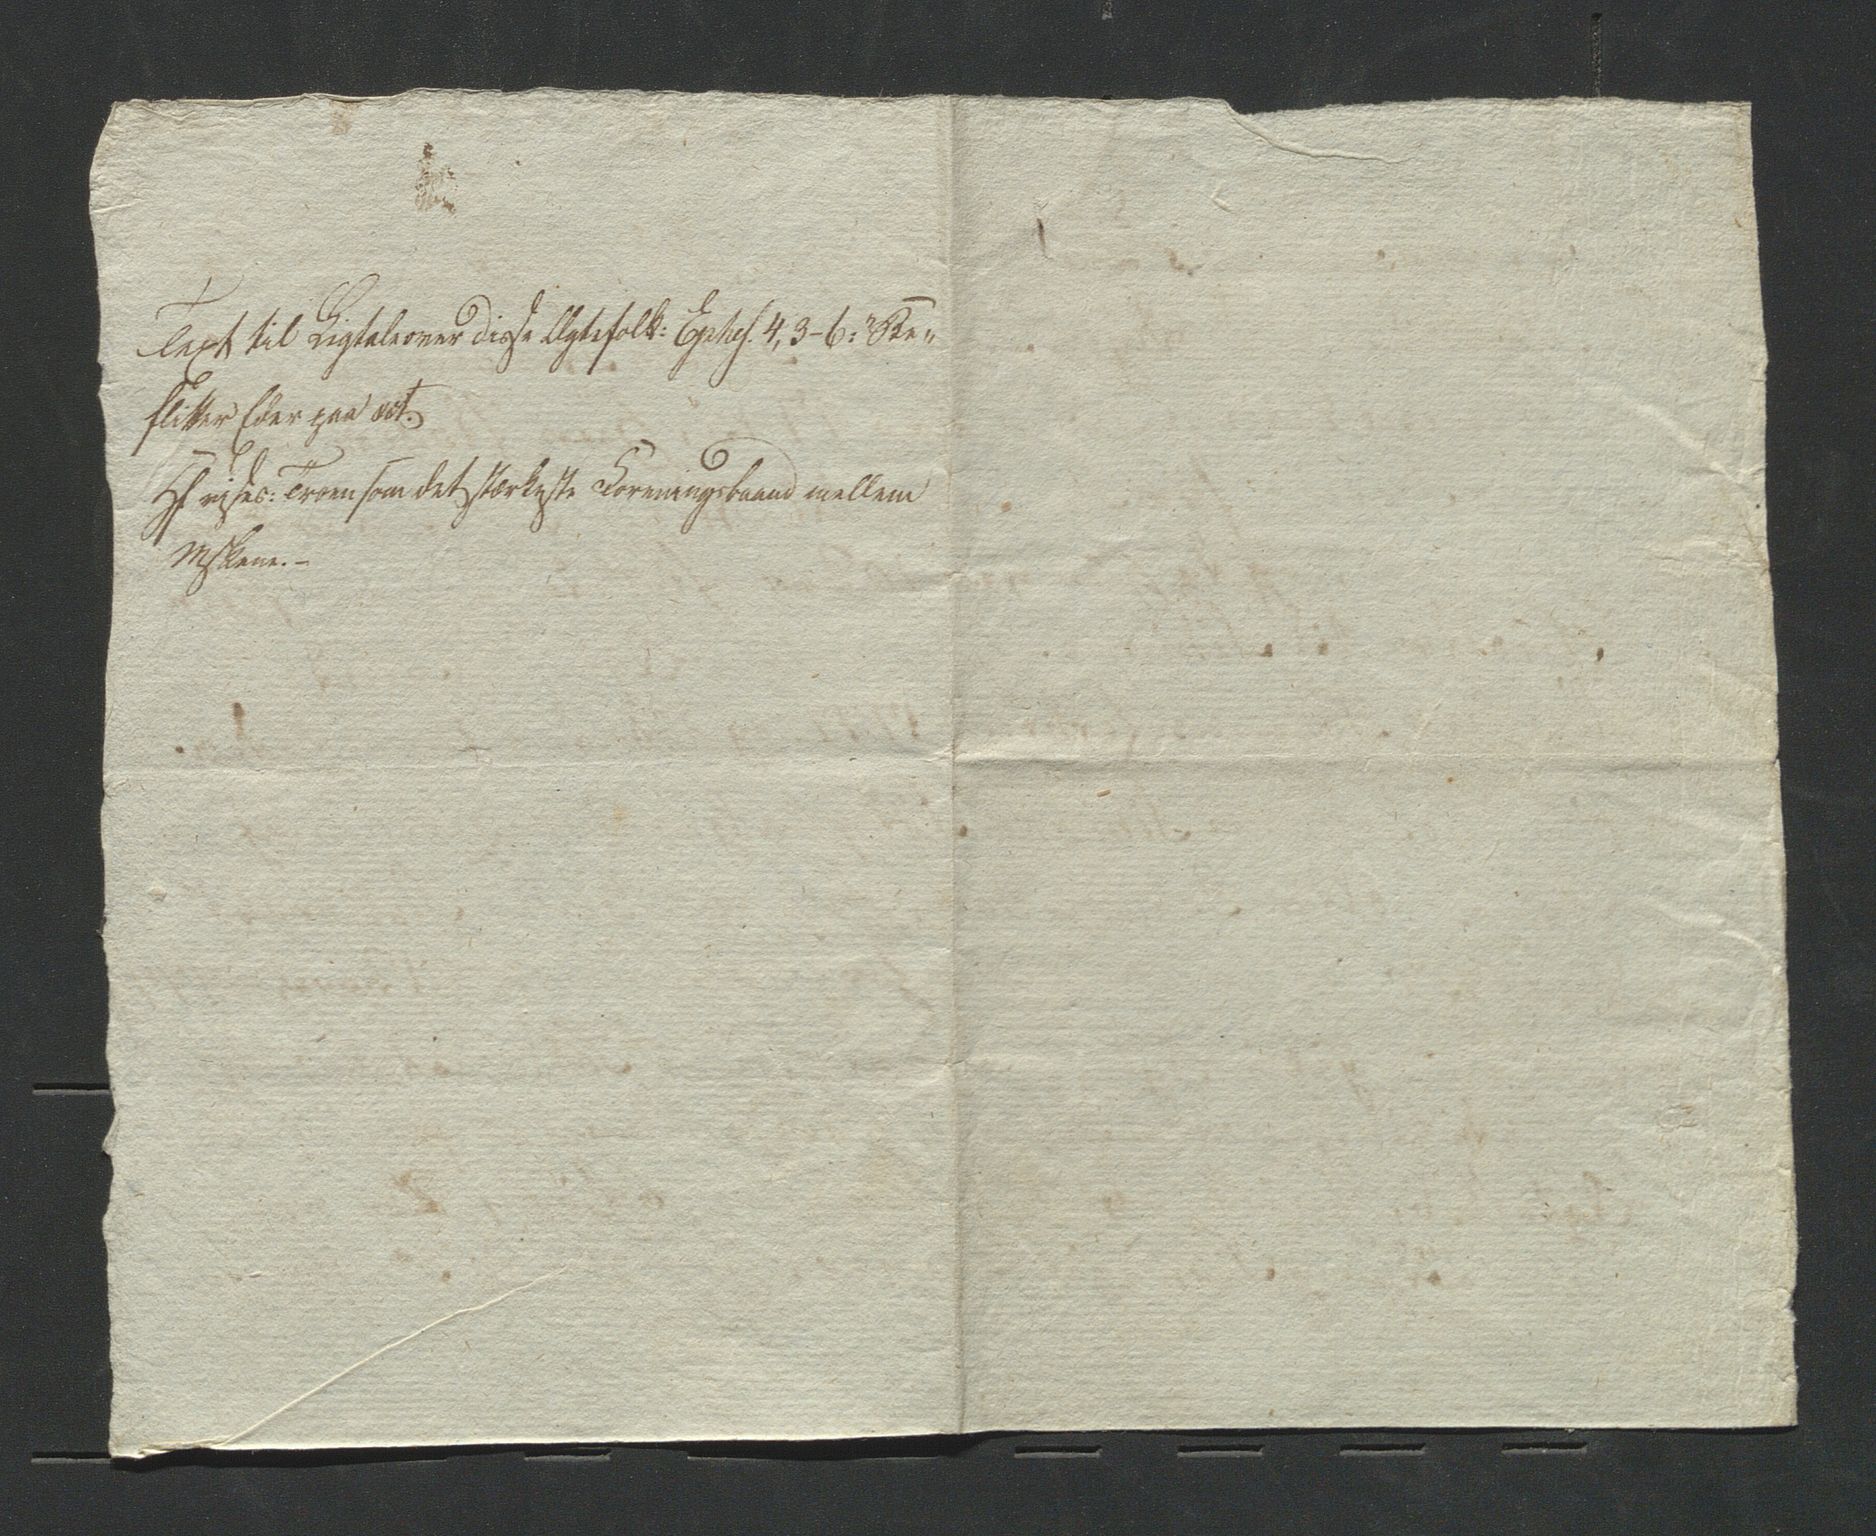 Text til Ligtale over disse Ægtefolk: Ephes. 4, 3-6: "Be"
flitter Eder paa det.
vises: Troen som det stærkeste Foreningsbaand mellem
Mskene. -